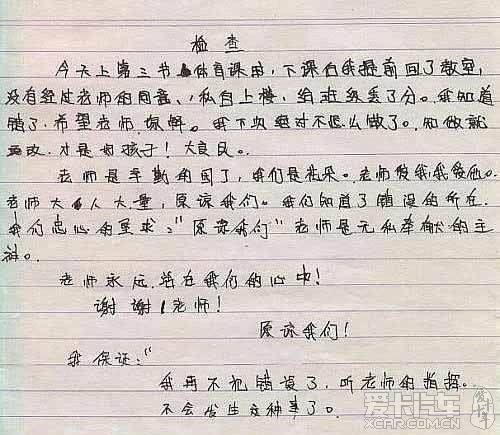 检查
今天上第三节体育课时，下课后我提前回了教室，
没有经过老师的同意、私自上楼，给班级丢了分。我知道
错了，希望老师原谅。我下次绝对不这么做了。知做就
改，才是好孩子！大良民。
老师是辛勤的园丁，我们是花朵。老师爱我，我爱他。
老师大人大量，原谅我们。我们知道了错误的所在，
我们忠心的要求：“原谅我们”老师是无私奉献的主
神。
老师永远活在我们的心中！
谢谢！老师！
原谅我们！
我保证：“
我再不犯错误了，听老师的指挥。
不会发生这种事了。
爱卡汽车
XCAR.COM.CN